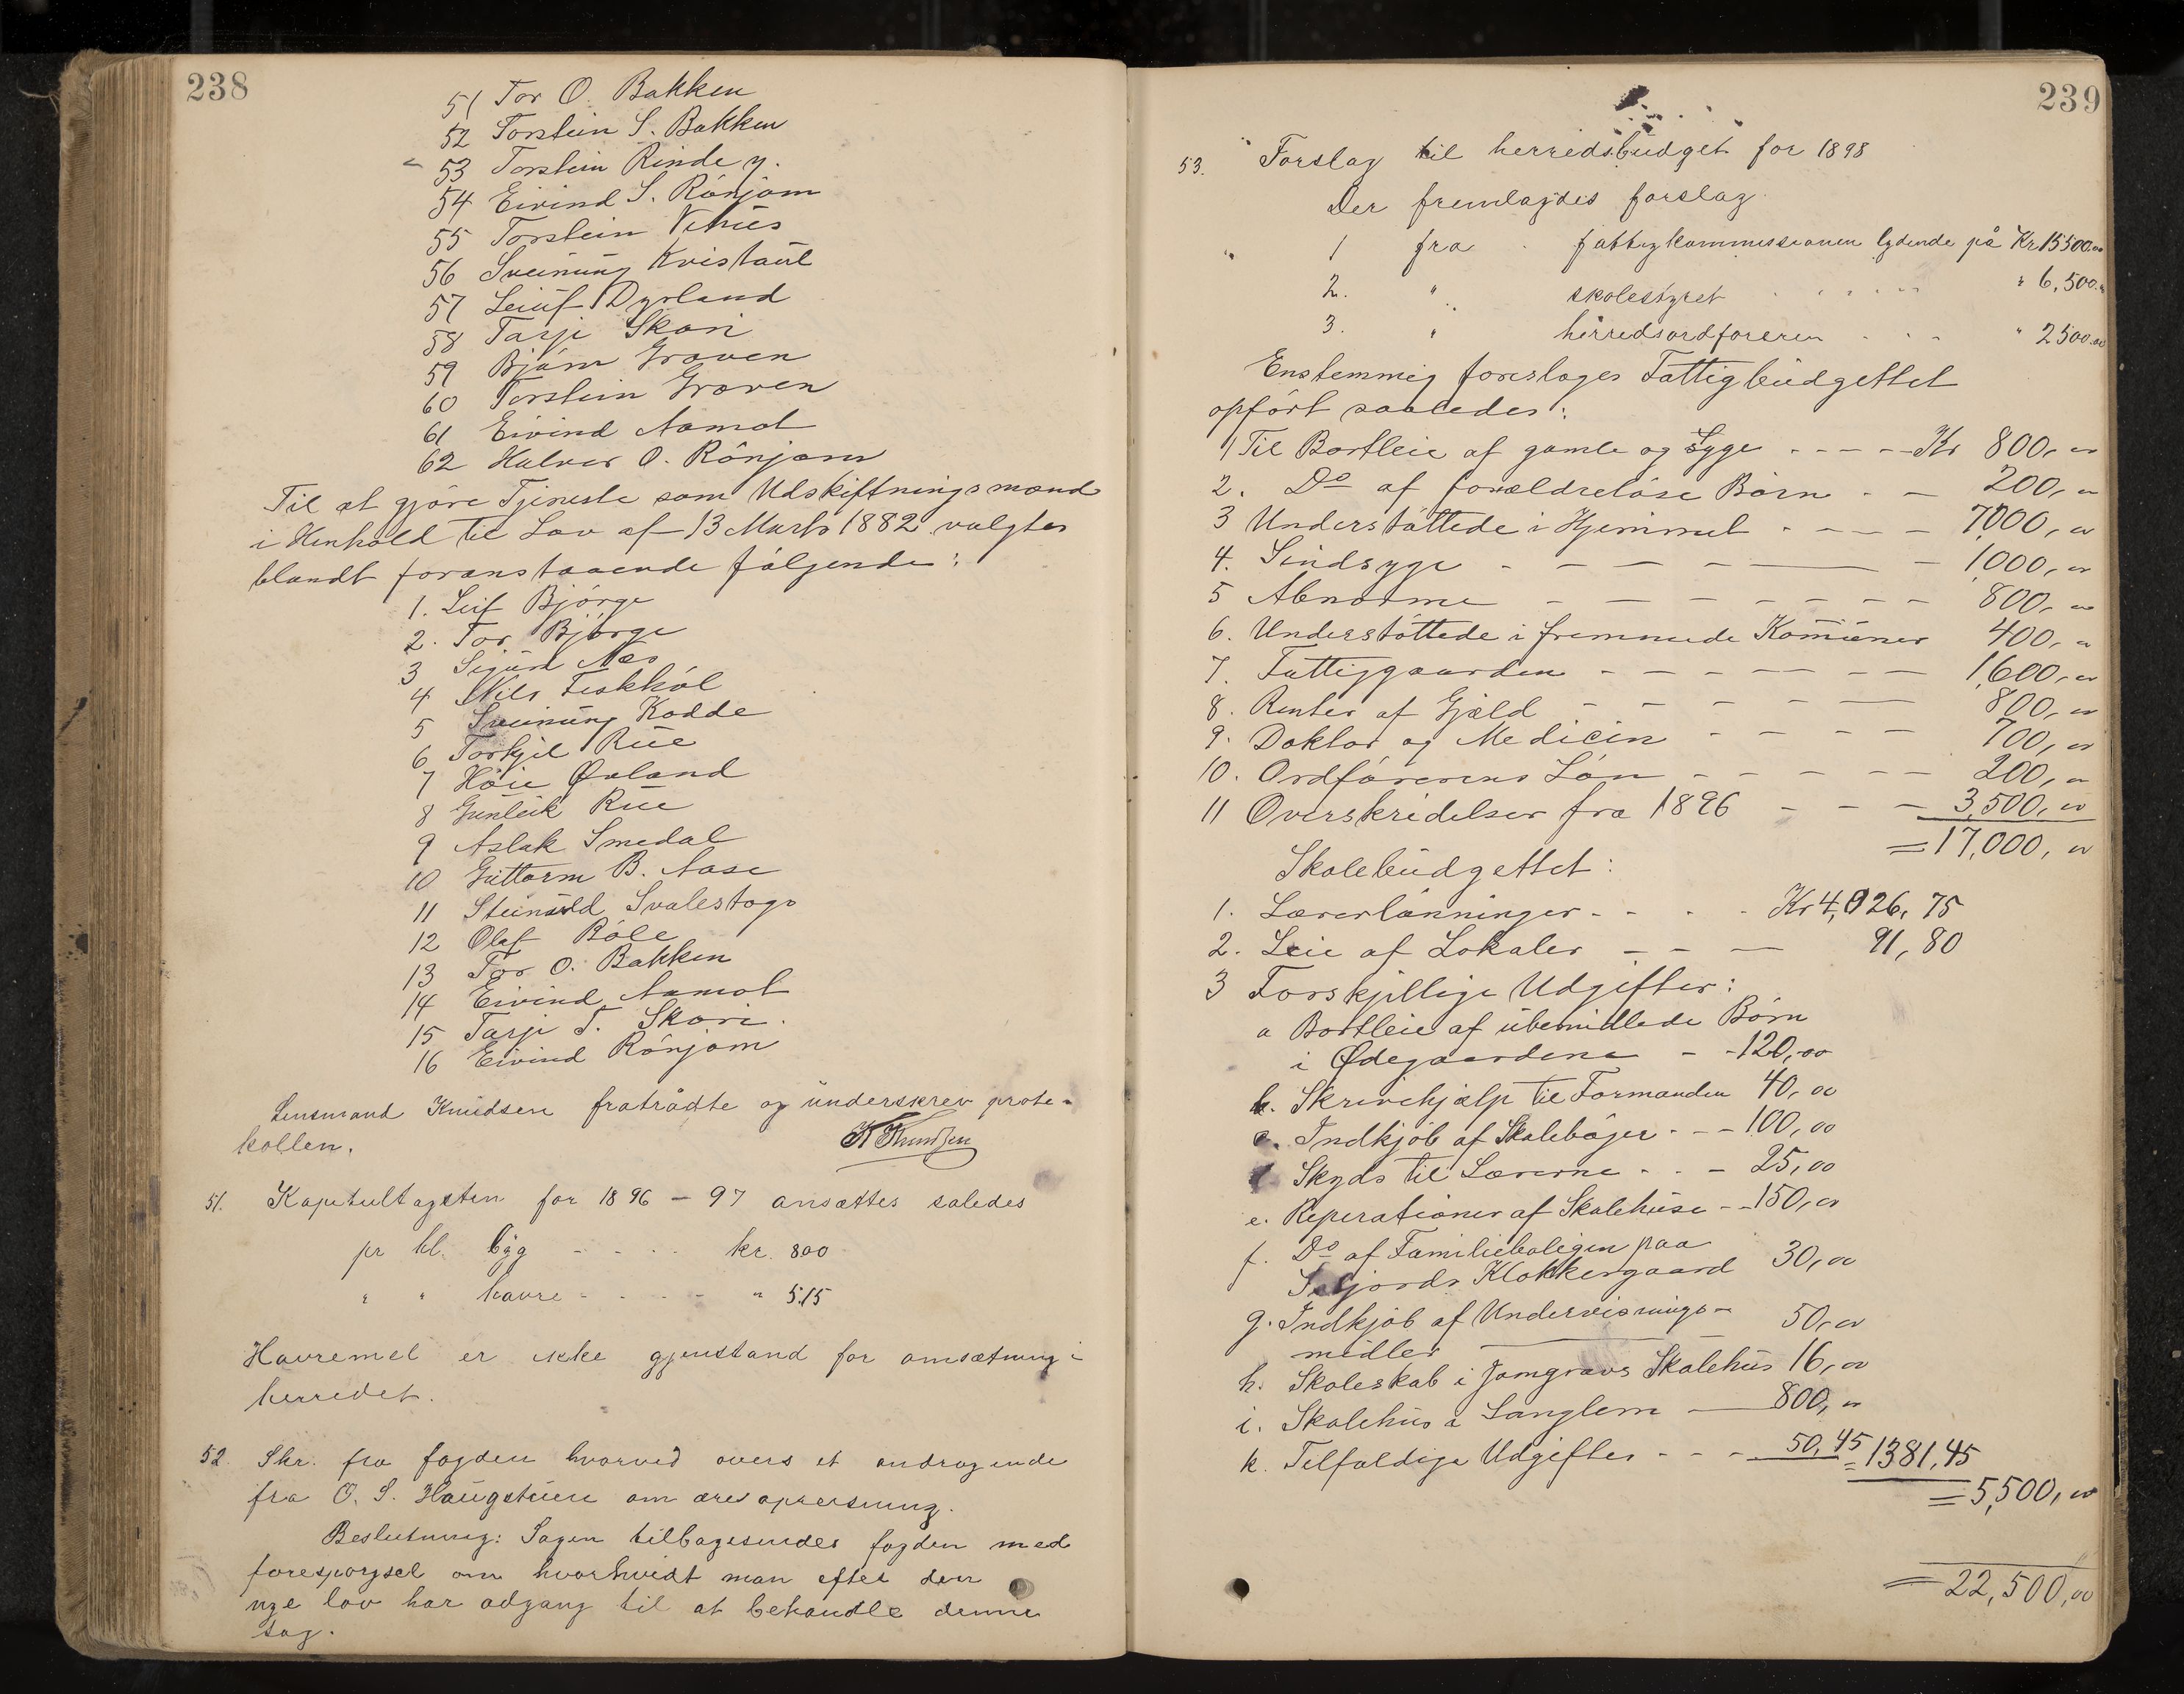 238
51 Tor O. Bakken
52 Torstein S. Bakken
53 Torstein Rinde y.
54 Eivind S. Rönjom
55 Torstein Vehus
56 Sveinung Kvistaul
57 Leiuf Dyrland
58 Tarje Skori
59 Björn Graven
60 Torstein Graven
61 Eivind Aamot
62 Halvor O. Rönjom
Til at gjöre Tjeneste som Udskiftningsmænd
i Henhold til Lov af 13 Marts 1882 valgtes
blandt foranstaaende fölgende:
1. Leif Björge
2. Tor Björge
3 Sigurd Næs
4 Nils Fiskhöl
5 Sveinung Kodde
6 Torkjel Rue
7 Höie Øvland
8 Gunleik Rue
9 Aslak Smedal
10 Guttorm B. Aase
11 Steinuld Svalestoga
12 Olaf Böle
13 Tor O. Bakken
14 Eivind Aamot
15 Tarje T. Skori.
16 Eivind Rönjom
Lensmand Knudsen fratrådte og underskrev proto-
kollen.
K Knudsen
51. Kapitultagsten for 1896 – 97 ansættes således
pr hl. byg - - - - kr. 800
" " havre - - - - " 515
Havremel er ikke gjenstand for omsætning i
herredet.
52. Skr. fra fogden hvorved overs et andragende
fra O. S. Haugstuen om æresopreisning.
Beslutning: Sagen tilbagesendes fogden med
forespørgsel om hvorhvidt man efter den
nye lov har adgang til at behandle denne
sag.
239
53. Forslag til herredsbudget for 1898
Der fremlagdes forslag
1 fra fattigkommissionen lydende på Kr 15500.00
2. " skolestyret " 6,500.
3. " herredsordføreren " 2500.00
Enstemmig foreslages Fattigbudgettet
opfört saaledes:
1 Til Bortleie af gamle og Syge - - - - Kr 800,00
2. Do af forældrelöse Börn - - 200,00
3 Understöttede i Hjemmet - - - - 7000,00
4. Sindsyge - - - - - 1000,00
5 Abnorme - - - - - - - 800,00
6. Understöttede i fremmede Komuner 400,00
7. Fattiggaarden - - - - - - - 1,600,00
8. Renter af Gjæld - - - - - 800,00
9. Doktor og Medicin - - - - 700,00
10. Ordförerens Lön - - - - - 200,00
11 Overskridelser fra 1896 - - - 3,500,00
= 17,000,00
Skolebudgettet:
1. Lærerlönninger - - - - Kr 4,026,75
2. Leie af Lokaler - - - 91,80
3 Forskjellige Udgifter:
a Bortleie af ubemidlede Börn
i Ødegaardene - - 120,00
b. Skrivehjælp til Formanden 40,00
c. Indkjöb af Skoleböger - - - 100,00
d Skyds til Lærerne - - - 25,00
e. Reperationer af Skolehuse - - 150,00
f. Do af Familieboligen paa
Seljords Klokkergaard 30,00
g. Indkjöb af Undervisnings-
midler 50,00
h. Skoleskab i Jomgravs Skolehus 16,00
i. Skolehus i Langlem 800,00
k. Tilfældige Udgifter - - - 50,45 = 1381,45
= 5,500,00
= 22,500,00